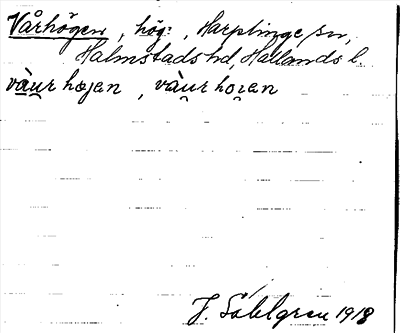 Vårhögen, hög, Harplinge sn,
Halmstads hd, Hallands l.
vàu̯r hæjen, vàu̯r hoɪen
J. Sahlgren 1918